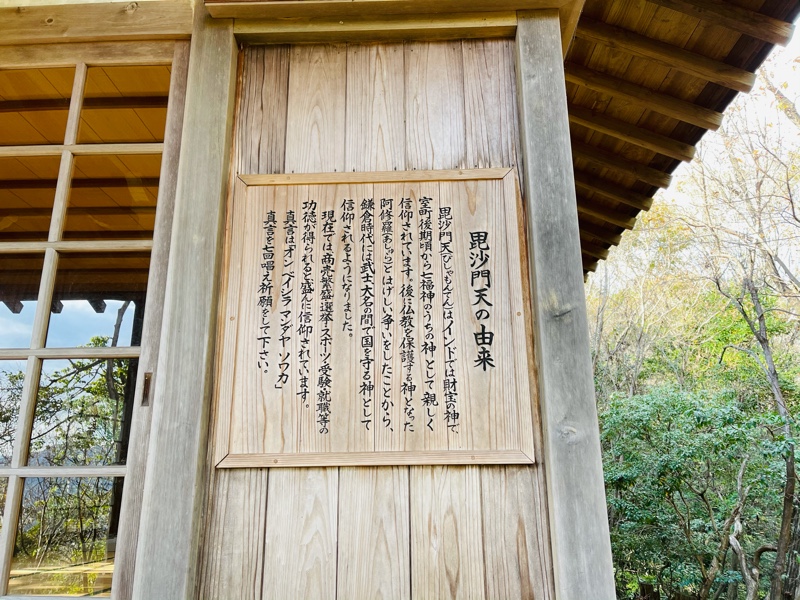 毘沙門天の由来
毘沙門天(びしゃもんてん)は、インドでは財宝の神で、
室町後期頃から七福神のうちの神として親しく
信仰されています。後に仏教を保護する神となった
阿修羅(あしゅら)とはげしい争いをしたことから、
鎌倉時代には武士・大名の間で国を守る神として
信仰されるようになりました。
現在では商売繁盛・選挙・スポーツ・受験・就職等の
功徳が得られると盛んに信仰されています。
真言は「オン ベイシラ マンダヤ ソワカ」
真言を七回唱え祈願をして下さい。